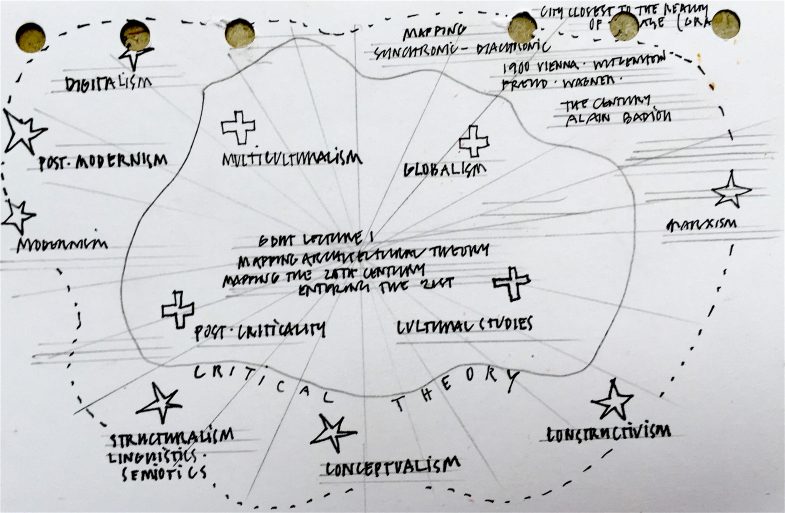 CITY CLOSEST TO THE REALITY
OF
MAPPING
SYNCHRONIC - DIACHRONIC
1900 VIENNA · WITGENSTEIN
FREUD · WAGNER ·
THE CENTURY
ALAIN BADIOU
DIGITALISM
POST·MODERNISM
MULTICULTURALISM
GLOBALISM
MODERNISM
MARXISM
LECTURE 1
MAPPING ARCHITECTURAL THEORY
MAPPING THE 20TH CENTURY
ENTERING THE 21ST
POST·CRITICALITY
CULTURAL STUDIES
CRITICAL THEORY
STRUCTURALISM
LINGUISTICS·
SEMIOTICS
CONCEPTUALISM
CONSTRUCTIVISM